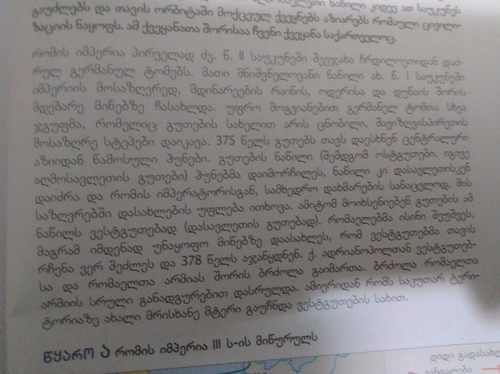 გაუძლებს და თავის ორბიტაში მოქცეულ ქვეყნებს აზიარებს რომაული ცივილი-
ზაციის ნაყოფს. ამ ქვეყანათა შორისაა ჩვენი ქვეყანა საქართველოც.
რომის იმპერია პირველად ძვ. წ. II საუკუნეში შეეჯახა ჩრდილოეთიდან დაძ-
რულ გერმანულ ტომებს. მათი მნიშვნელოვანი ნაწილი ახ. წ. I საუკუნეში
იმპერიის მოსაზღვრედ, მდინარეების რაინის, ოდერისა და დუნაის შორის
მდებარე მიწებზე ჩასახლდა. უფრო მოგვიანებით გერმანელ ტომთა სხვა
ჯგუფმა, რომელიც გუთების სახელით არის ცნობილი, შავიზღვისპირეთის
მოსაზღვრე სტეპები დაიკავა. 375 წელს გუთებს თავს დაესხნენ ცენტრალური
აზიიდან წამოსული ჰუნები. გუთების ნაწილი (შემდგომ ოსტგუთები, იგივე
აღმოსავლეთის გუთები) ჰუნებმა დაიმორჩილეს, ნაწილი კი დასავლეთისკენ
დაიძრა და რომის იმპერატორისგან, სამხედრო დახმარების სანაცვლოდ, მის
საზღვრებში დასახლების უფლება ითხოვა. ამიტომ მოიხსენიებენ გუთების ამ
ნაწილს ვესტგუთებად (დასავლეთის გუთებად). რომაელებმა ისინი შეუშვეს,
მაგრამ იმდენად უნაყოფო მიწებზე დაასახლეს, რომ ვესტგუთებმა თავის
რჩენა ვერ შეძლეს და 378 წელს აჯანყდნენ. ქ. ადრიანოპოლთან ვესტგუთებ-
სა და რომაელთა არმიას შორის ბრძოლა გაიმართა. ბრძოლა რომაელთა
არმიის სრული განადგურებით დასრულდა. ამიერიდან რომს საკუთარ ტერი-
ტორიაზე ახალი მრისხანე მტერი გაუჩნდა ვესტგუთების სახით.
წყარო ა რომის იმპერია III ს-ის მიწურულს
დიდი გადასახლ